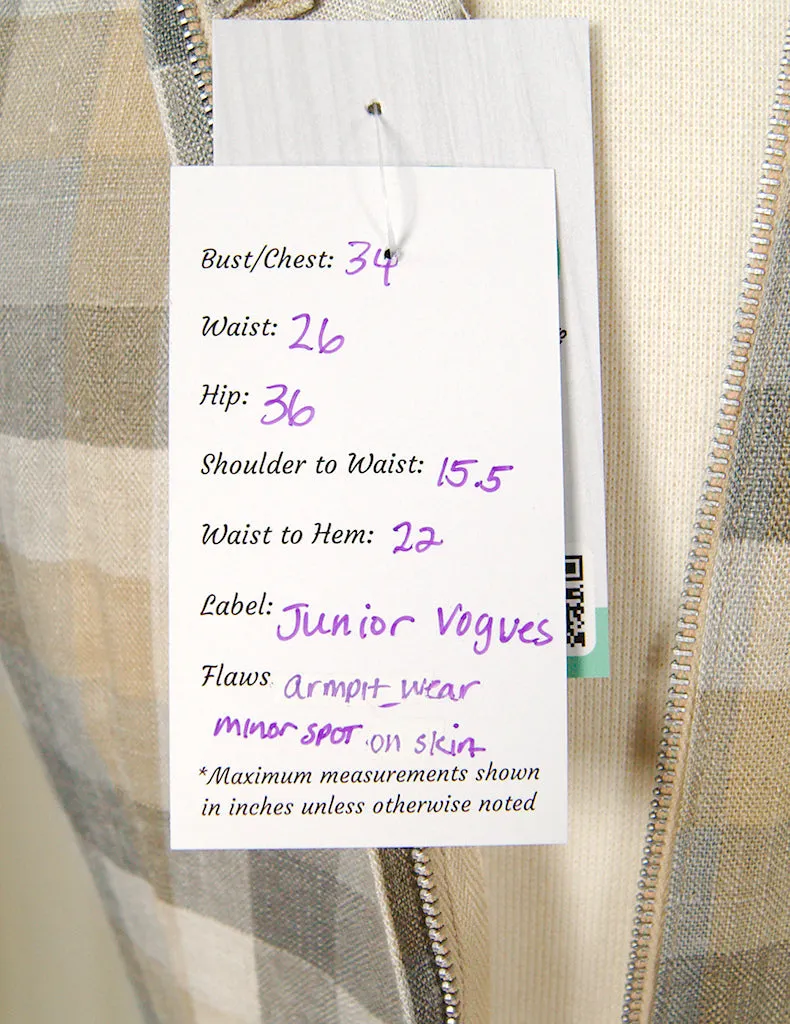 Bust/Chest: 34
Waist: 26
Hip: 36
Shoulder to Waist: 15.5
Waist to Hem: 22
Label: Junior Vogues
Flaws armpit wear
minor spot on skirt
*Maximum measurements shown
in inches unless otherwise noted